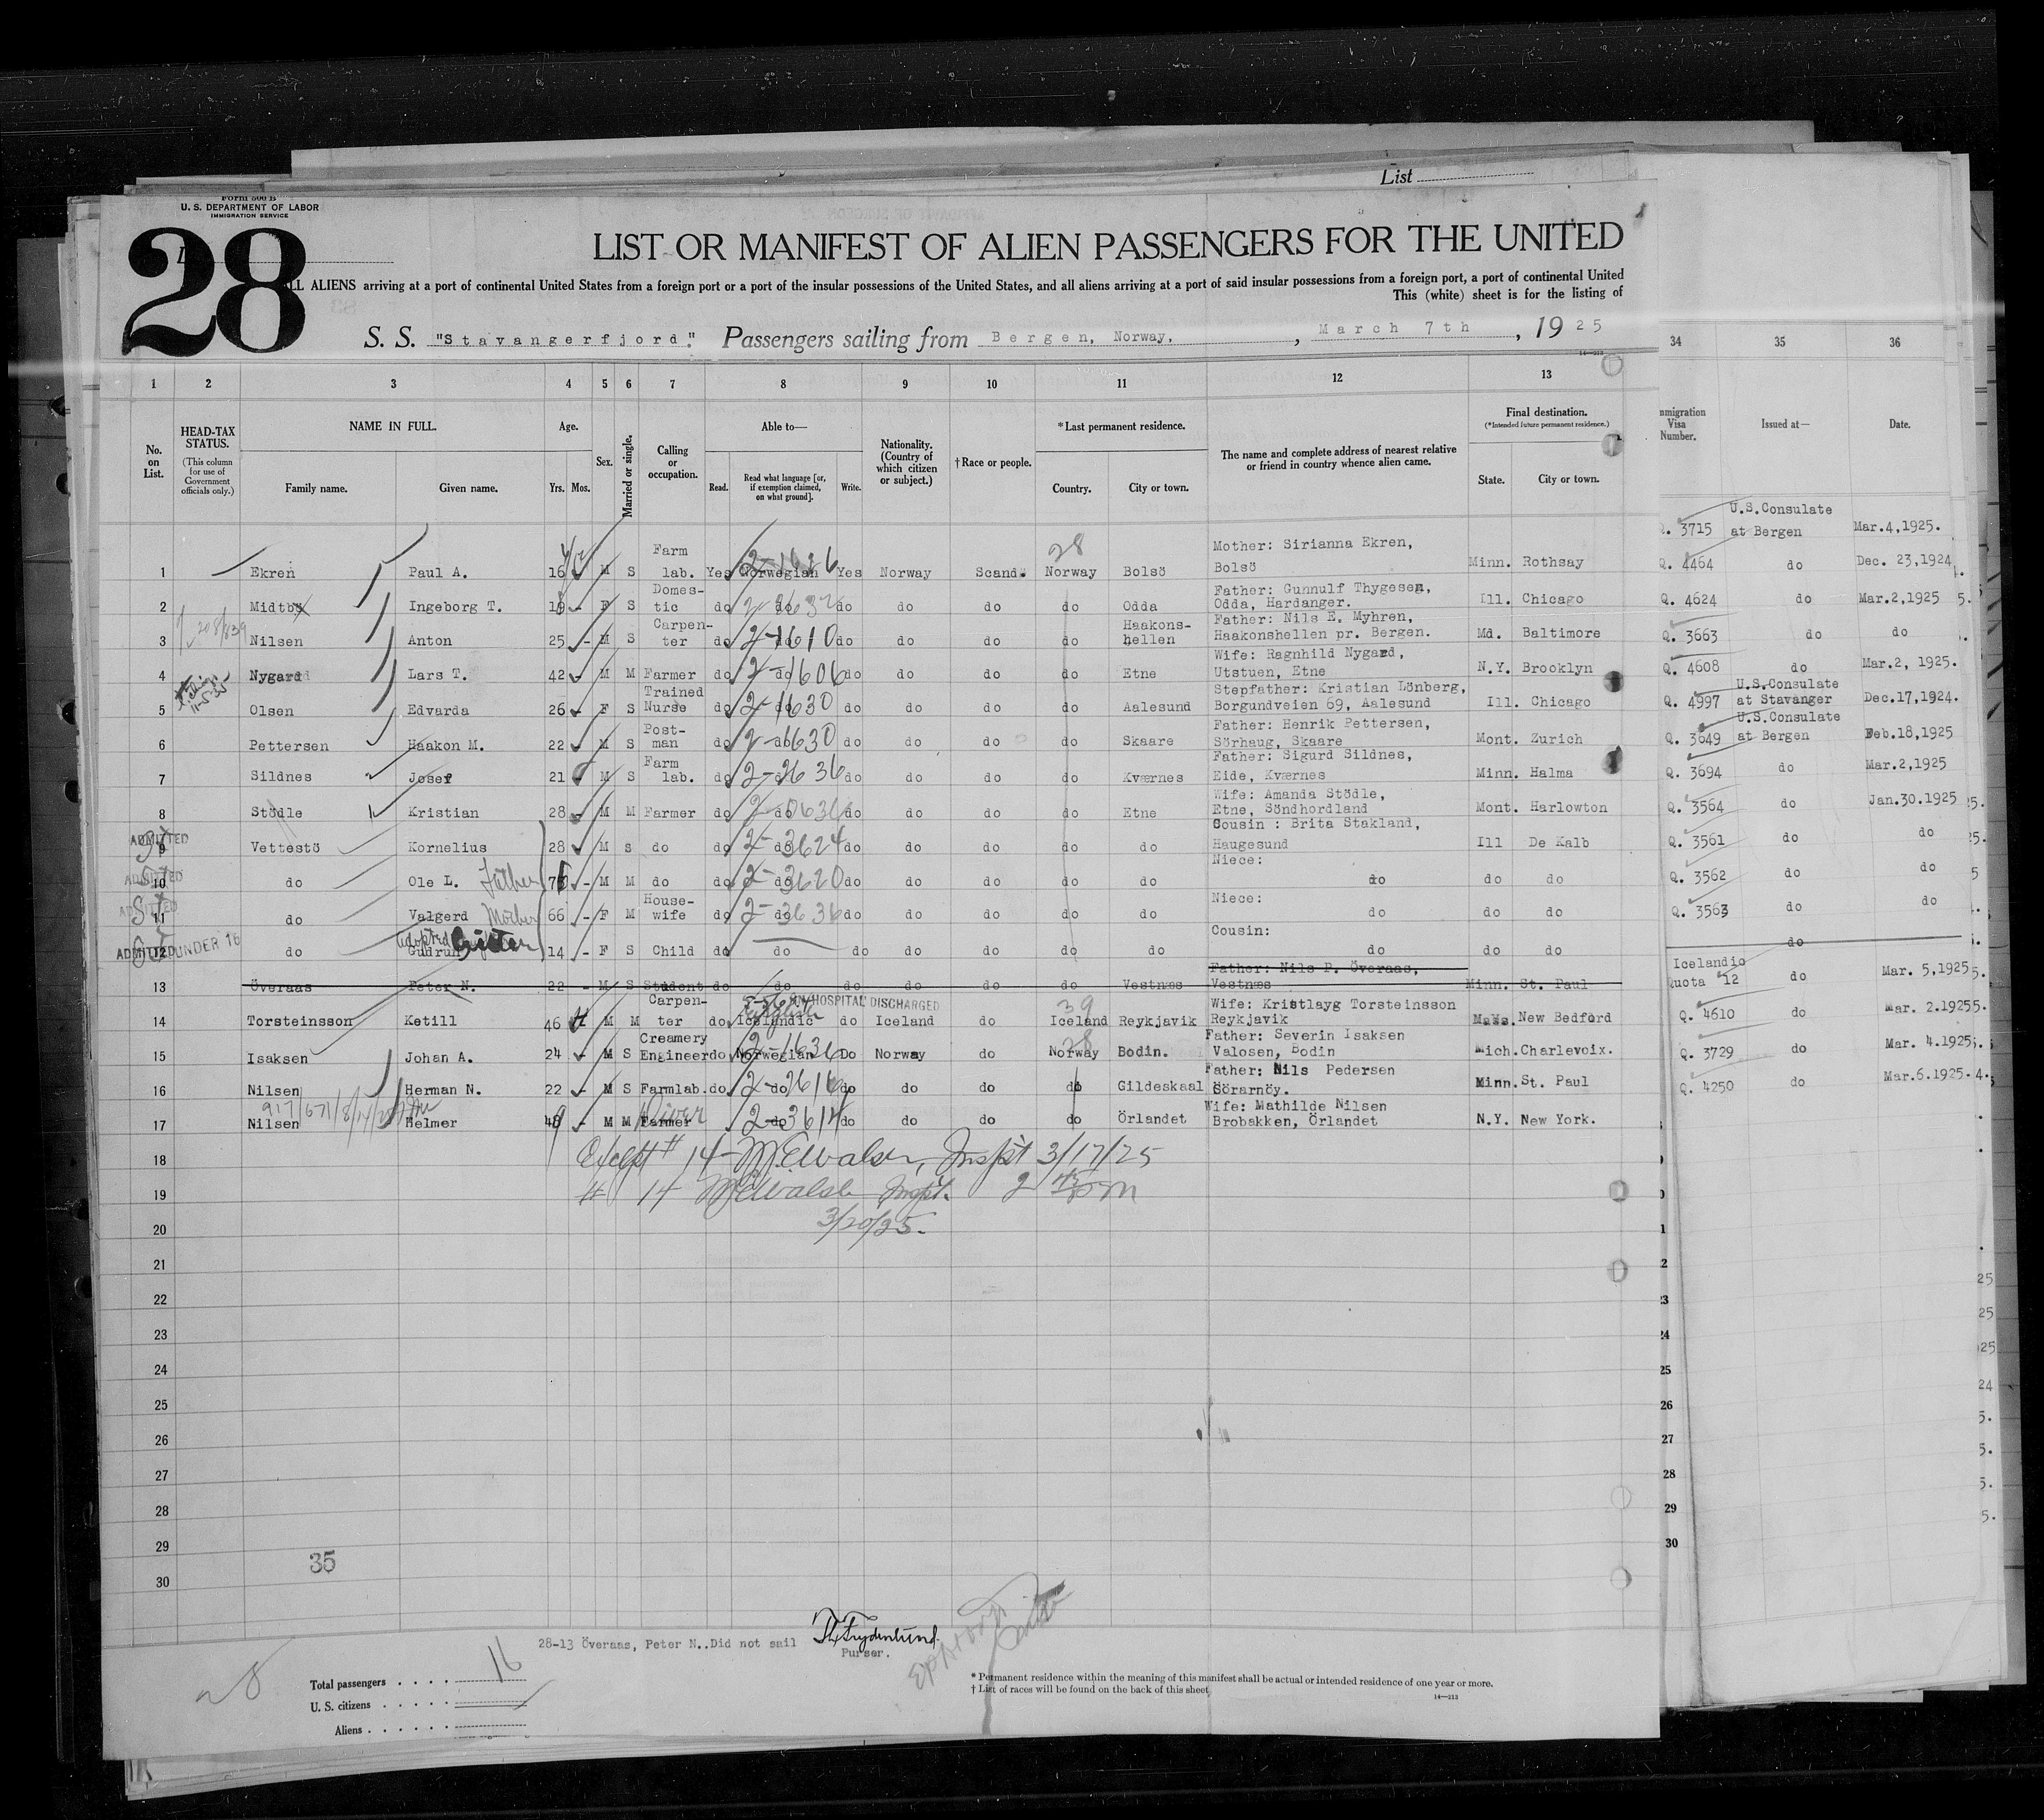 List
Form 500 B
U. S. DEPARTMENT OF LABOR
IMMIGRATION SERVICE
28
LIST OR MANIFEST OF ALIEN PASSENGERS FOR THE UNITED
ALL ALIENS arriving at a port of continental United States from a foreign port or a port of the insular possessions of the United States, and all aliens arriving at a port of said insular possessions from a foreign port, a port of continental United
This (white) sheet is for the listing of
S. S. "Stavangerfjord". Passengers sailing from Bergen, Norway, , March 7th , 1925
14—213
1 2 3 4 5 6 7 8 9 10 11 12 13 34 35 36
No. on List. HEAD-TAX STATUS. (This column for use of Government officials only.) NAME IN FULL. Family name. Given name. Age. Yrs. Mos. Sex. Married or single. Calling or occupation. Able to— Read. Read what language [or, if exemption claimed, on what ground]. Write. Nationality. (Country of which citizen or subject.) †Race or people. *Last permanent residence. Country. City or town. The name and complete address of nearest relative or friend in country whence alien came. Final destination. (*Intended future permanent residence.) State. City or town. mmigration Visa Number. Issued at— Date.
Q. 3715 U.S.Consulate at Bergen Mar.4,1925.
1 Ekren Paul A. 16 M S Farm lab. Yes Norwegian 2-1636 Yes Norway Scand. 28 Norway Bolsö Mother: Sirianna Ekren, Bolsö Minn. Rothsay Q. 4464 do Dec. 23,1924
2 Midtbö Ingeborg T. 19 - F S Domestic do do do do do do Odda Father: Gunnulf Thygesen, Odda, Hardanger. Ill. Chicago Q. 4624 do Mar.2,1925
3 Nilsen Anton 25 - M S Carpenter do do 2-1610 do do do do Haakonshellen Father: Nils E. Myhren, Haakonshellen pr. Bergen. Md. Baltimore Q. 3663 do do
4 Nygard Lars T. 42 - M M Farmer do do 2-1606 do do do do Etne Wife: Ragnhild Nygard, Utstuen, Etne N.Y. Brooklyn Q. 4608 do Mar.2, 1925.
5 Olsen Edvarda 26 - F S Trained Nurse do do 2-1630 do do do do Aalesund Stepfather: Kristian Lönberg, Borgundveien 69, Aalesund Ill. Chicago Q. 4997 U.S.Consulate at Stavanger Dec.17,1924.
6 Pettersen Haakon M. 22 M S Postman do do 2-1630 do do do do Skaare Father: Henrik Pettersen, Sörhaug, Skaare Mont. Zurich Q. 3649 U.S.Consulate at Bergen Feb.18,1925
7 Sildnes Josef 21 M S Farm lab. do do 2-2636 do do do do Kværnes Father: Sigurd Sildnes, Eide, Kværnes Minn. Halma Q. 3694 do Mar.2,1925
8 Stödle Kristian 28 M M Farmer do do do do do do Etne Wife: Amanda Stödle, Etne, Söndhordland Mont. Harlowton Q. 3564 do Jan.30.1925
ADMITTED 9 Vettestö Kornelius 28 M S do do do 2-3624 do do do do do Cousin : Brita Stakland, Haugesund Ill De Kalb Q. 3561 do do
ADMITTED 10 do Ole L. Father - M M do do do 2-3620 do do do do do Niece: do do do Q. 3562 do do
ADMITTED 11 do Valgerd Mother 66 - F M Housewife do do 2-3636 do do do do do Niece: do do do Q. 3563 do do
ADMITTED UNDER 16 12 do Gudrun adopted Sister 14 - F S Child do do do do do do do Cousin: do do do do
13 Överaas Peter N. 22 - M S Student do do do do do do Vestnæs Father: Nils P. Överaas, Vestnæs Minn. St. Paul Icelandic Quota 12 do Mar. 5,1925
14 Torsteinsson Ketill 46 M M Carpenter do Icelandic English IN HOSPITAL DISCHARGED do Iceland do 39 Iceland Reykjavik Wife: Kristlayg Torsteinsson Reykjavik Mass. New Bedford Q. 4610 do Mar. 2.1925
15 Isaksen Johan A. 24 - M S Creamery Engineer do Norwegian 2-1636 Do Norway do 28 Norway Bodin. Father: Severin Isaksen Valosen, Bodin Mich. Charlevoix. Q. 3729 do Mar. 4.1925
16 Nilsen Herman N. 22 - M S Farmlab. do do 2-2616 do do do do Gildeskaal Father: Nils Pedersen Sörarnöy. Minn. St. Paul Q. 4250 do Mar.6.1925
17 Nilsen Helmer 49 - M M Farmer Diver do 2-3614 do do do do Örlandet Wife: Mathilde Nilsen Brobakken, Örlandet N.Y. New York.
18 Except # 14 - M.E.Walsh, Inspt 3/17/25
19 # 14 M.E.Walsh Inspt.
20 3/20/25.
21
22
23
24
25
26
27
28
29
30
35
28-13 Överaas, Peter N..Did not sail
Purser.
28
Total passengers . . . . 16
U. S. citizens . . . . .
Aliens . . . . . .
* Permanent residence within the meaning of this manifest shall be actual or intended residence of one year or more.
† List of races will be found on the back of this sheet.
14—213